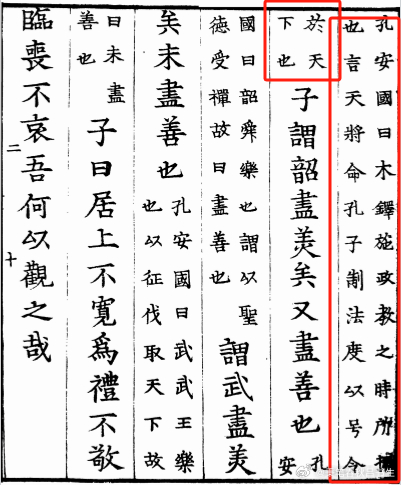 孔安國曰木鐸施政教之時所振
也言天將命孔子制法度以号令
於天
下也
子謂韶盡羙矣又盡善也
孔
安
國曰韶舜樂也謂以聖
德受禪故曰盡善也
謂武盡羙
矣未盡善也
孔安國曰武武王樂
也以征伐取天下故
曰未盡
善也
子曰居上不寬爲禮不敬
臨喪不哀吾何以觀之哉
二十